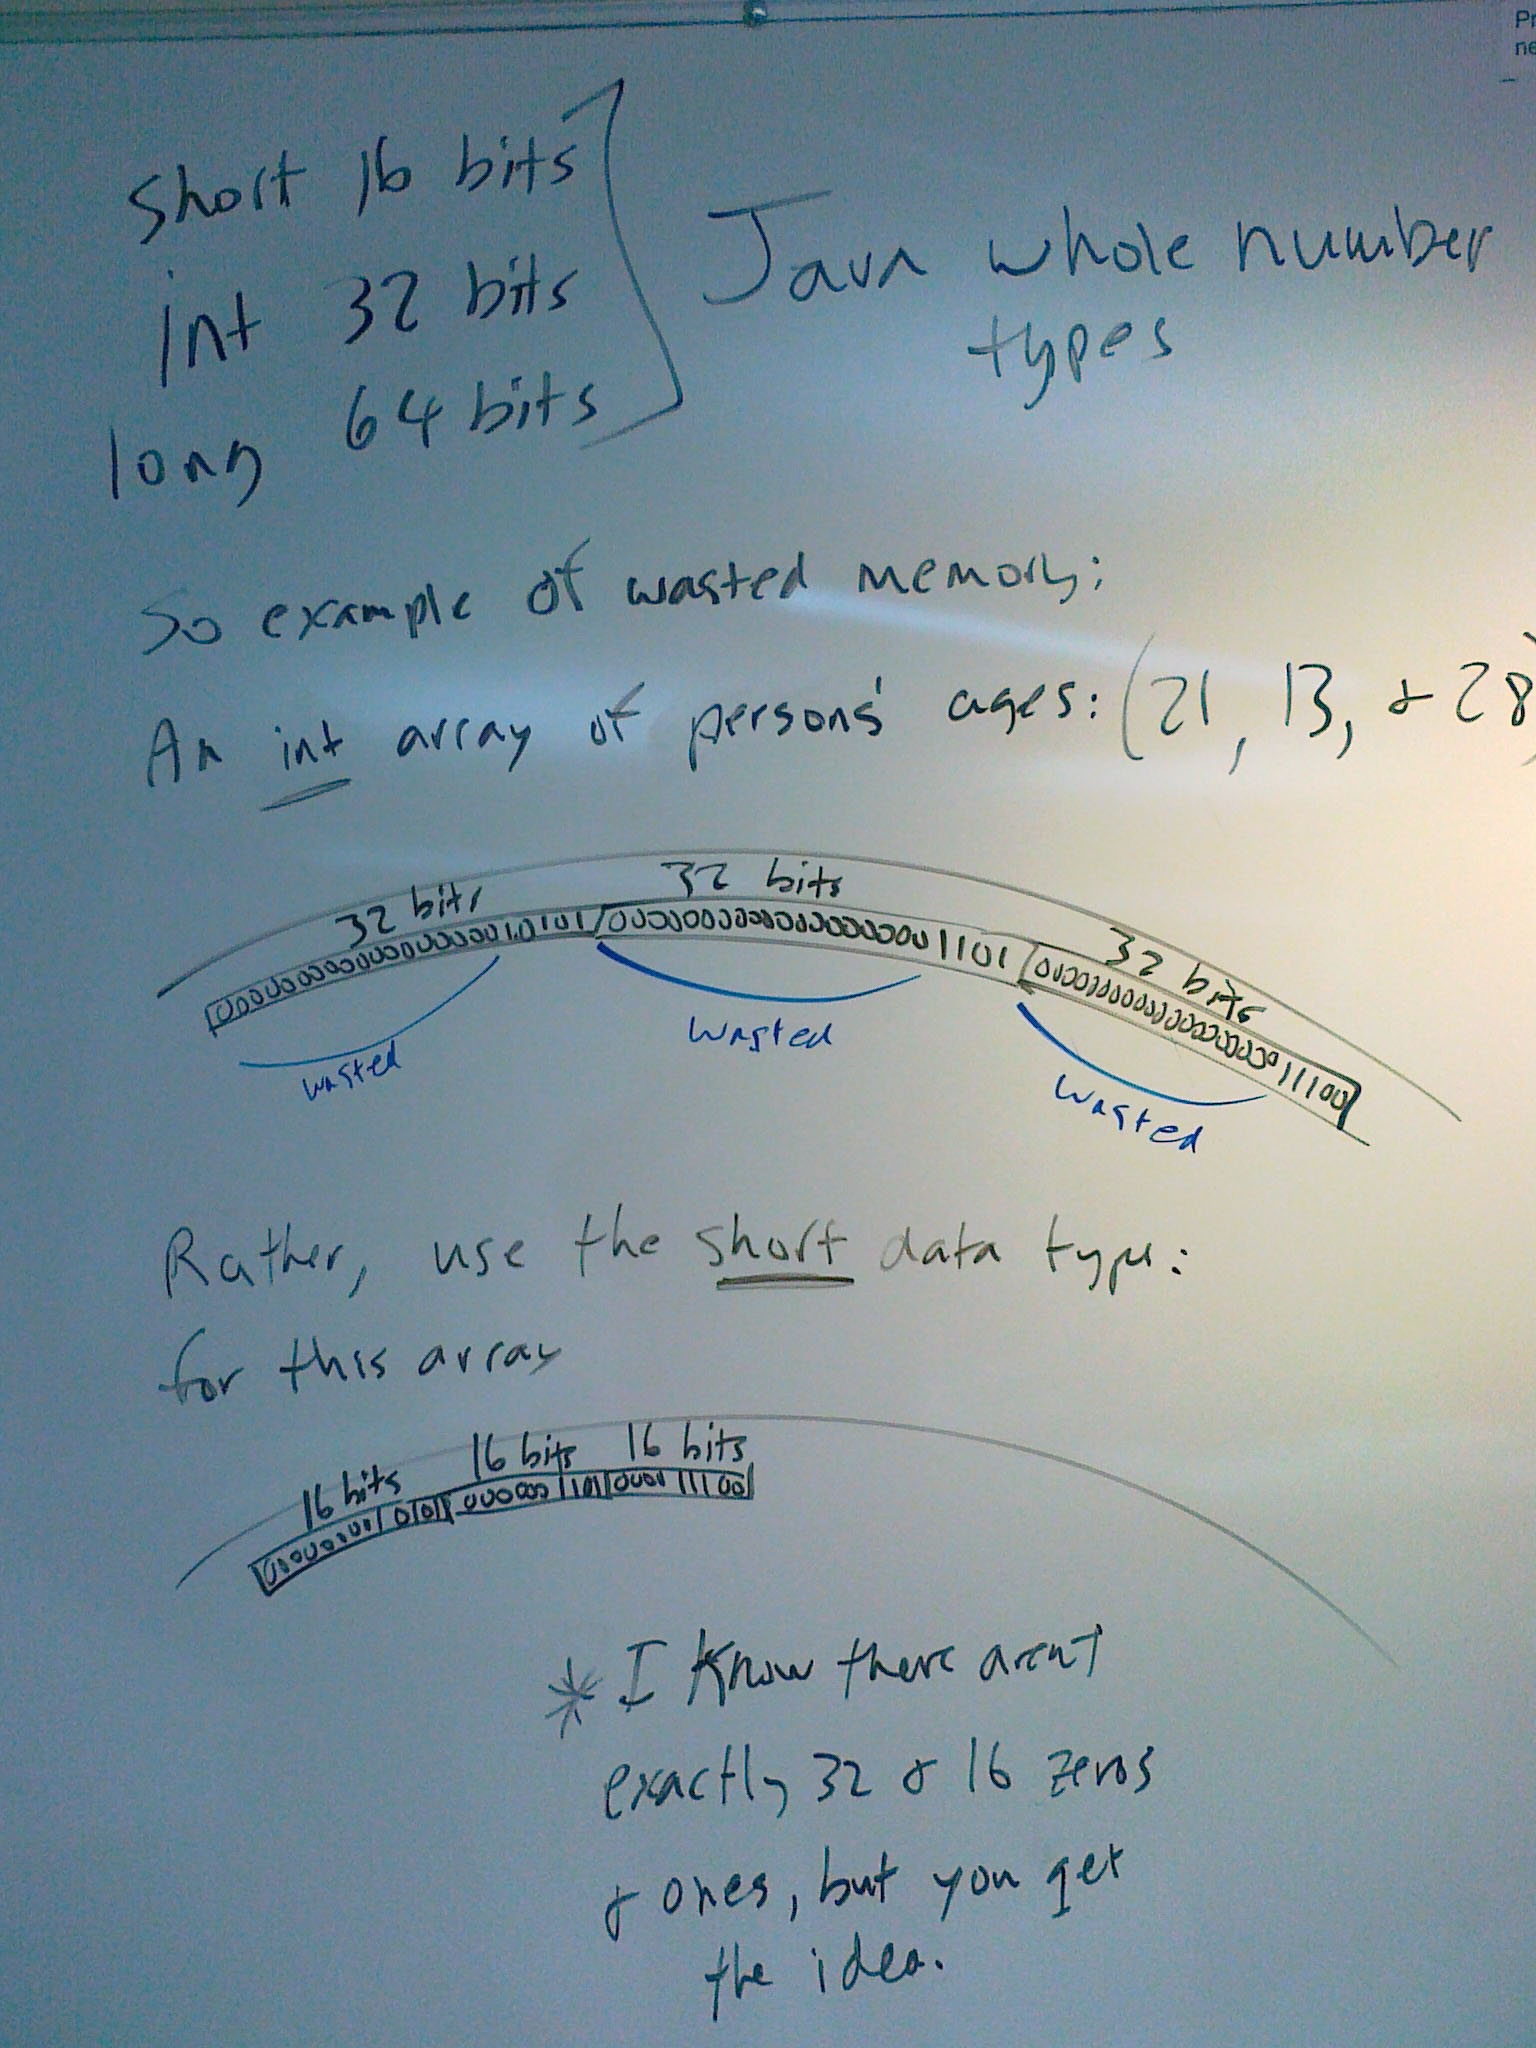 Pr
ne
short 16 bits
int 32 bits
long 64 bits
Java whole number
types
So example of wasted memory:
An int array of persons' ages: (21, 13, & 28)
32 bits
32 bits
32 bits
10101
1101
11100
wasted
wasted
wasted
Rather, use the short data type:
for this array
16 bits
16 bits
16 bits
10101
1101
11100
* I know there aren't
exactly 32 & 16 zeros
& ones, but you get
the idea.